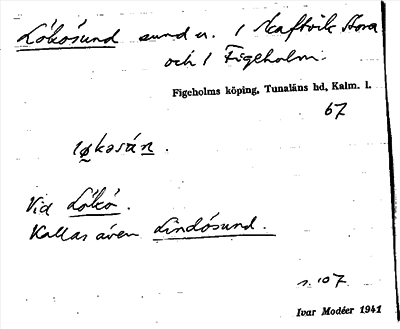 Lökösund sund u. / Skaftvik Stora
och / Figeholm.
Figeholms köping, Tunaläns hd, Kalm. l.
67
løkəsún.
Vid Lökö.
Kallas även Lindösund.
s. 107
Ivar Modéer 1941